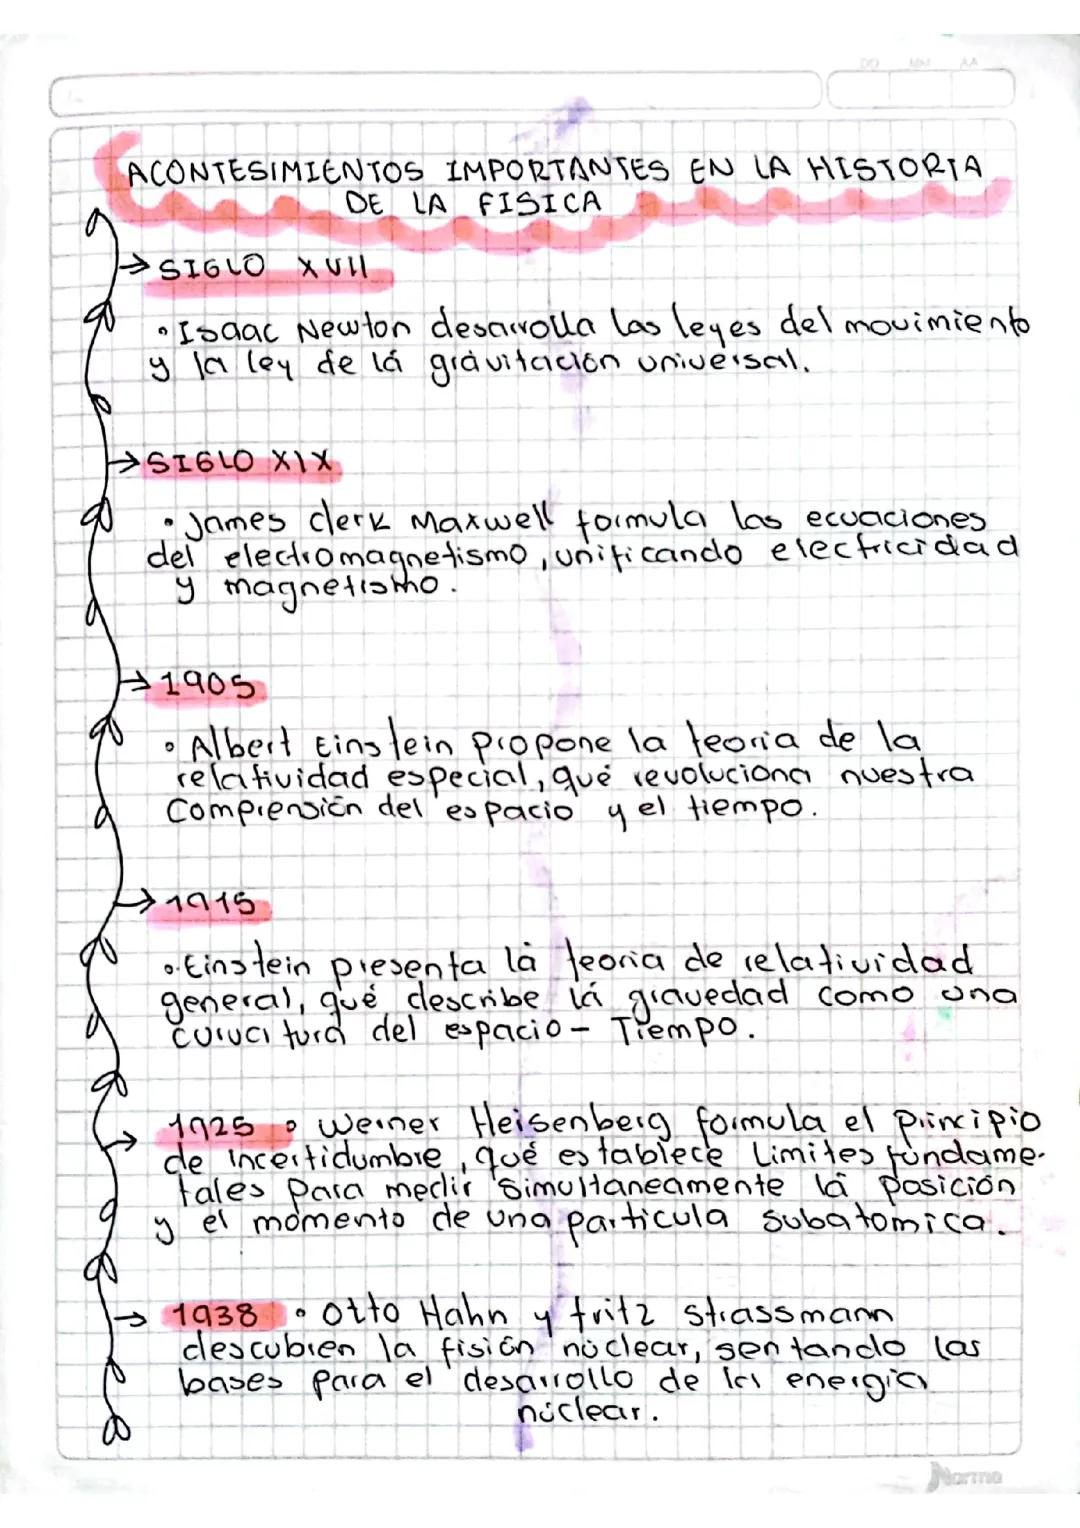 DD MM AA
ACONTESIMIENTOS IMPORTANTES EN LA HISTORIA
DE LA FISICA
→ SIGLO XVII
• Isaac Newton desarrolla las leyes del movimiento
y la ley de lá gravitación universal.
→ SIGLO XIX
• James clerk Maxwell formula las ecuaciones
del electromagnetismo, unificando electricidad
y magnetismo.
→ 1905
• Albert Einstein propone la teoria de la
relatividad especial, qué revoluciona nuestra
Comprensión del espacio y el tiempo.
→ 1915
• Einstein presenta lá teoria de relatividad
general, qué describe lá gravedad como una
curvatura del espacio - Tiempo.
→ 1925 • Werner Heisenberg formula el principio
de incertidumbre, qué establece limites fundame-
tales para medir simultaneamente lá posición
y el momento de una particula subatomica.
→ 1938 • Otto Hahn y fritz strassmann
descubren la fisión núclear, sentando las
bases para el desarrollo de la energia
núclear.
Norma